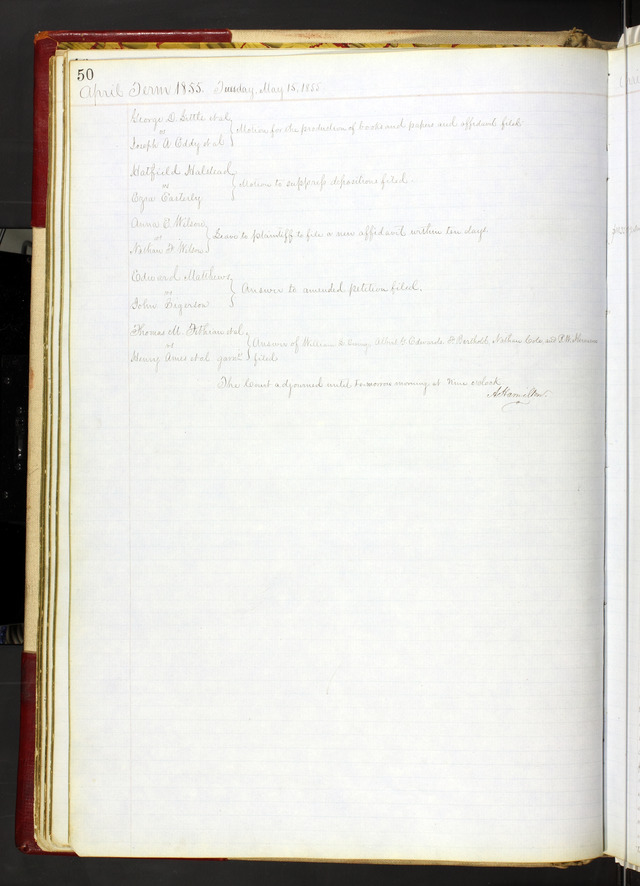 50
April Term 1855. Tuesday, May 15, 1855
George D. Little et al
vs
Joseph A. Eddy et al
Motion for the production of books and papers and affidavit filed
Hatfield Halstead
vs
Ezra Easterly
Motion to suppress depositions filed.
Anna C. Wilson
vs
Nathan H. Wilson
Leave to plaintiff to file a new affidavit within ten days
Edward Matthews
vs
John Figerson
Answer to amended petition filed.
Thomas M. et al
vs
Henry Ames et al
Answer of William Albert G. Edwards, Bertholt, Nathan Cole, and
filed
The Court adjourned until to-morrow morning at nine o'clock
A Hamilton.